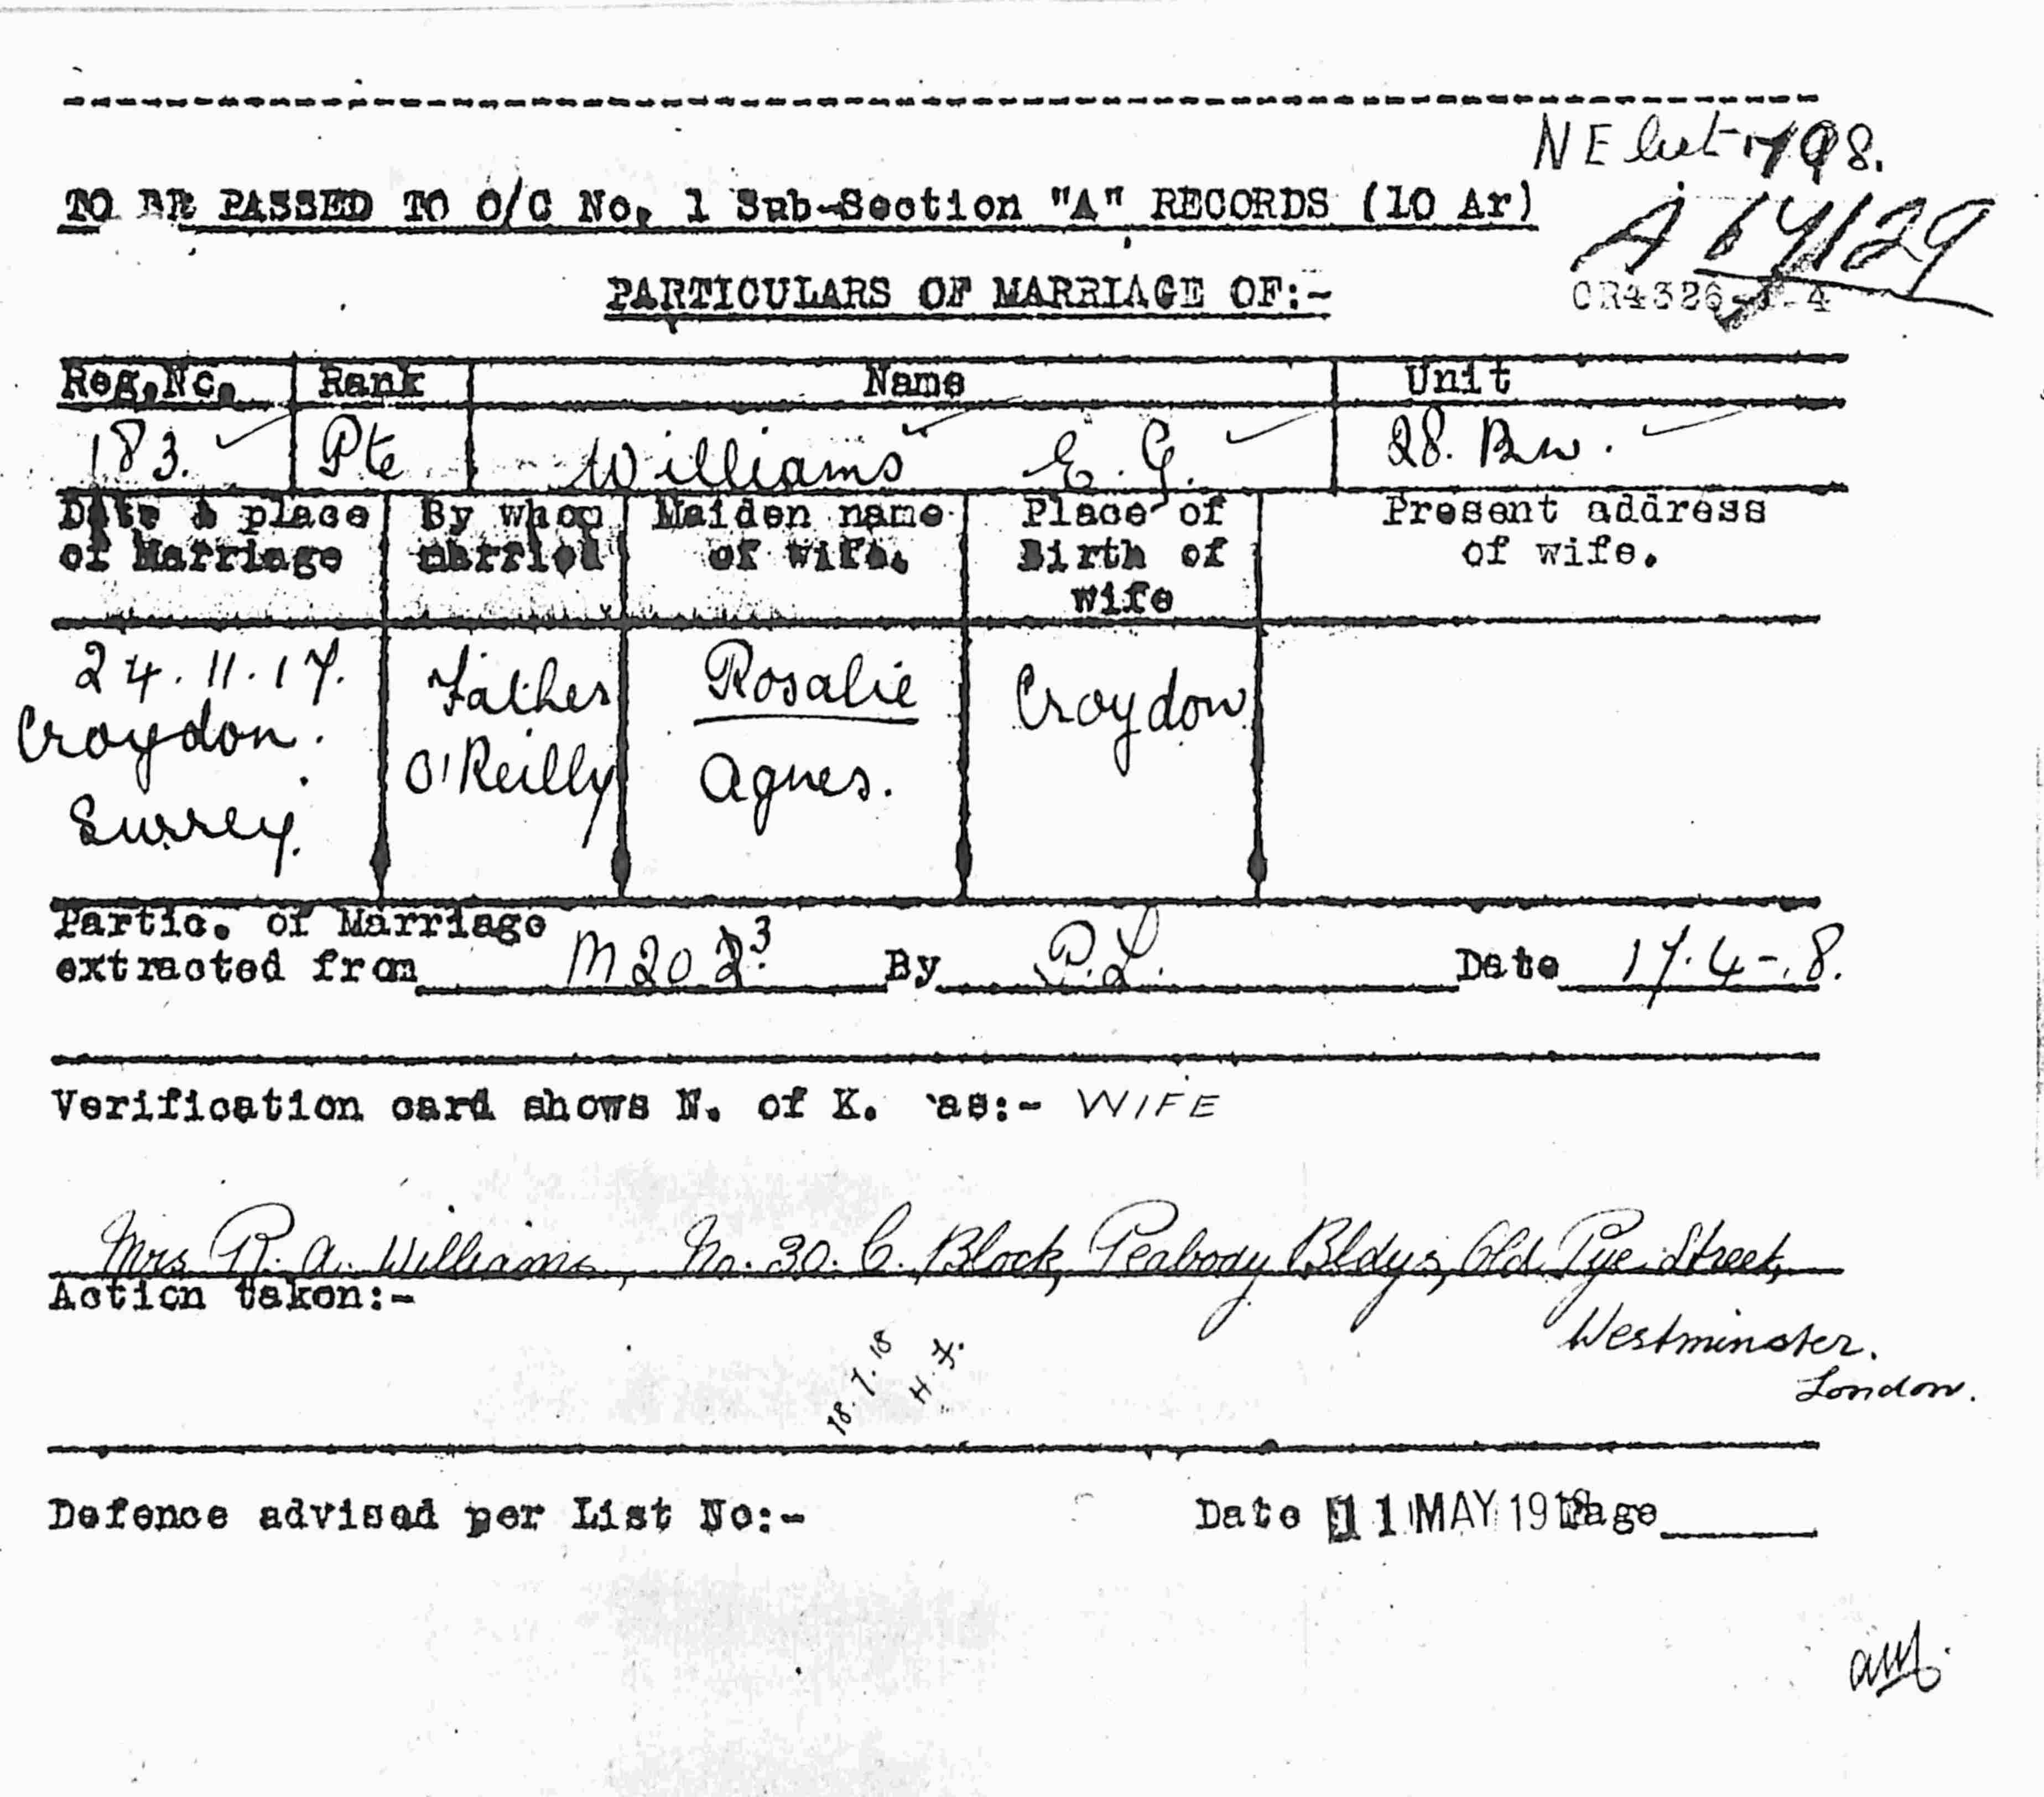 NE list 1498.
TO BE PASSED TO O/C No. 1 Sub-Section "A" RECORDS (10 Ar)
A 64129
PARTICULARS OF MARRIAGE OF:-
CR4326
Reg.No. Rank Name Unit
183. Pte Williams E. G. 28. Bn.
Date & place By whom Maiden name Place of Present address
of Marriage married of wife. Birth of of wife.
wife
24.11.17. Father Rosalie Croydon
Croydon. O'Reilly Agnes.
Surrey.
Partic. of Marriage
extracted from M 203 By P.L. Date 17.4-.8.
Verification card shows N. of K. as:- WIFE
Mrs R. A. Williams, No. 30. C. Block, Peabody Bldgs, Old Pye Street,
Action taken:-
Westminster.
London.
18.7.18
Defence advised per List No:- Date 11 MAY 1918 Page